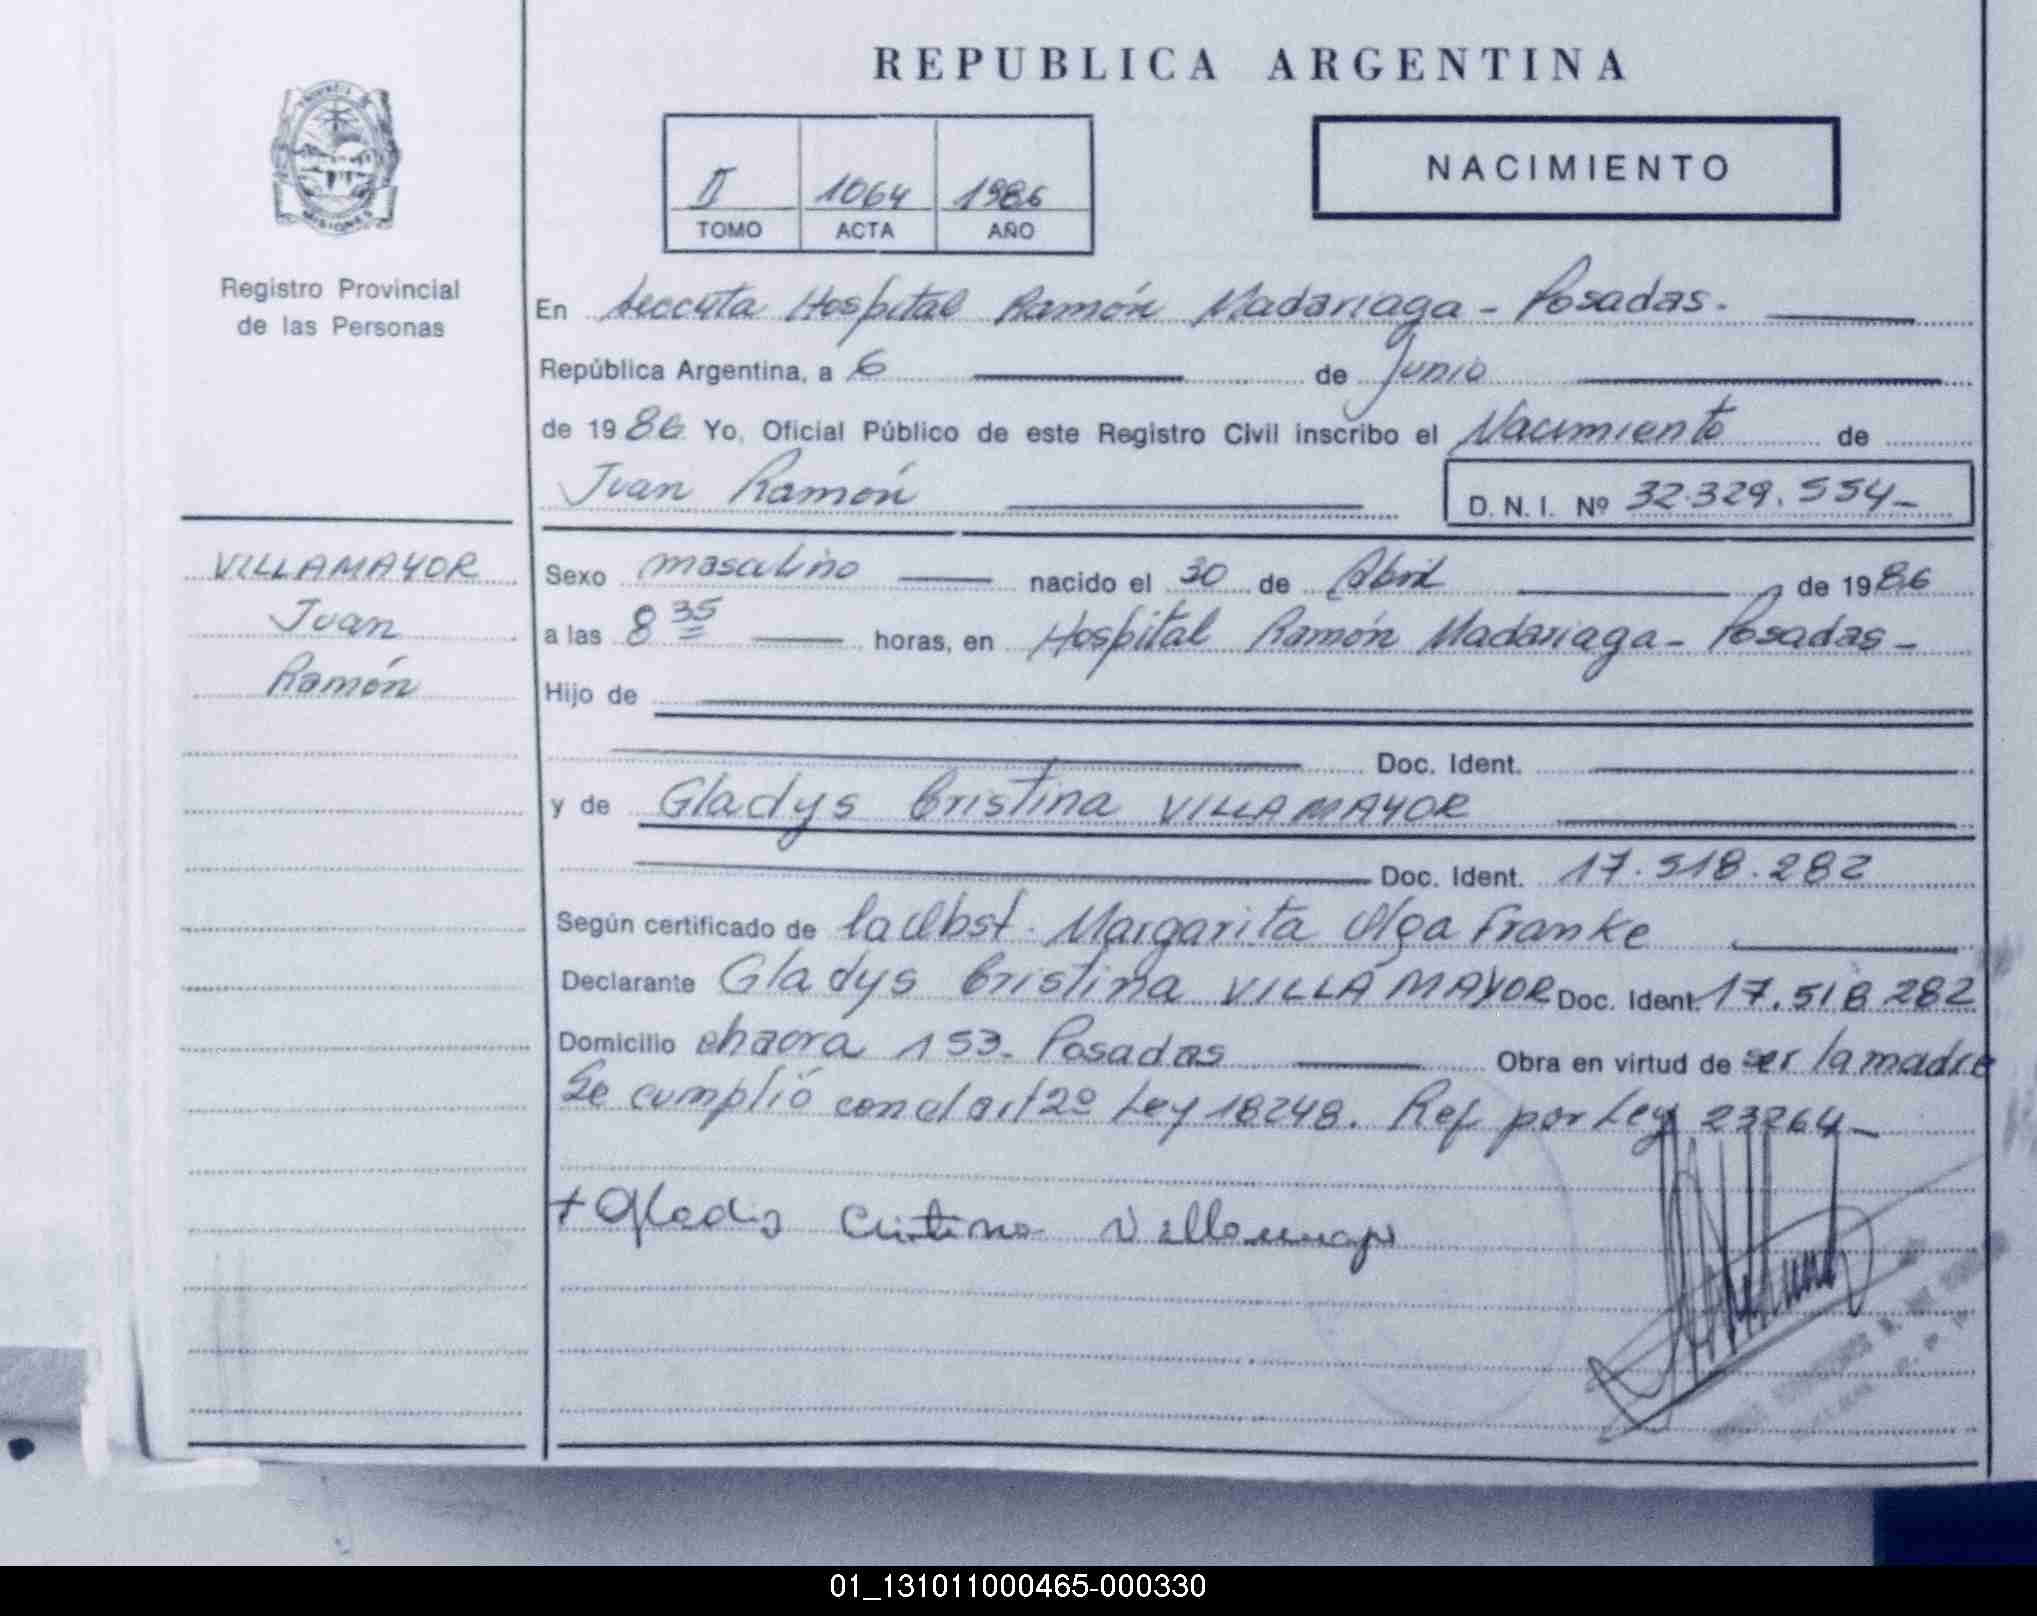 REPUBLICA ARGENTINA
NACIMIENTO
II 1064 1986
TOMO ACTA AÑO
MISIONES
Registro Provincial
de las Personas
En Seccyta Hospital Ramón Madariaga - Posadas.
República Argentina, a 6 de Junio
de 1986 Yo, Oficial Público de este Registro Civil inscribo el Nacimiento de
Juan Ramón
D. N. I. Nº 32.329.554-
VILLAMAYOR
Juan
Ramón
Sexo masculino nacido el 30 de Abril de 1986
a las 8 35 horas, en Hospital Ramón Madariaga - Posadas -
Hijo de
Doc. Ident.
y de Gladys Cristina VILLAMAYOR
Doc. Ident. 17.518.282
Según certificado de la Obst. Margarita Olga Franke
Declarante Gladys Cristina VILLAMAYOR Doc. Ident. 17.518.282
Domicilio chacra 153. Posadas Obra en virtud de ser la madre
Se cumplió con el art 2º Ley 18248. Ref. por Ley 23264-
+ Gladis Cristina Villamayor
01_131011000465-000330